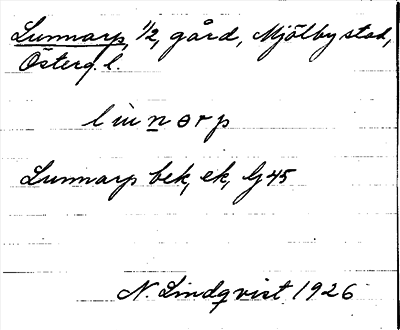 Lunnarp, 1/2, gård, Mjölby stad,
Österg. l.
Lunnarp bek, ek, Gj 45
N. Lindqvist 1926